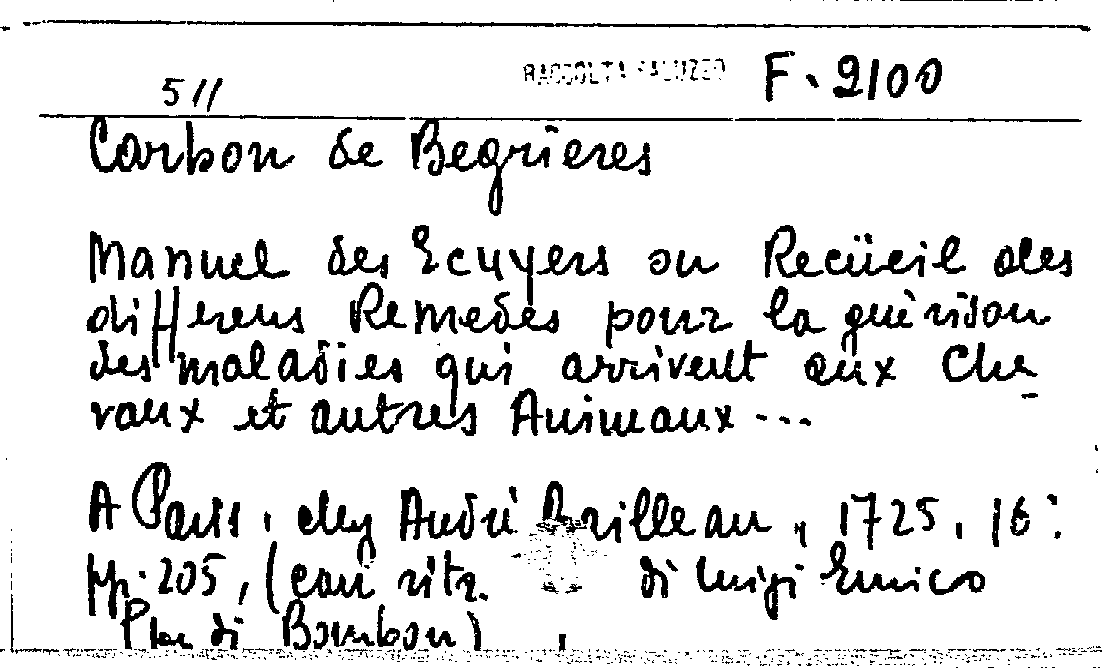 511 RACCOLTA SALUZZO F. 2100
Carbon de Begrieres
Manuel des Ecuyers ou Recüeil des
differens Remedes pour la guérison
des maladies qui arrivent aux Che
vaux et autres Animaux...
A Paris, chez André Brilleau, 1725, 16°.
pp. 205, (con ritr. di Luigi Enrico
di Bourbon)